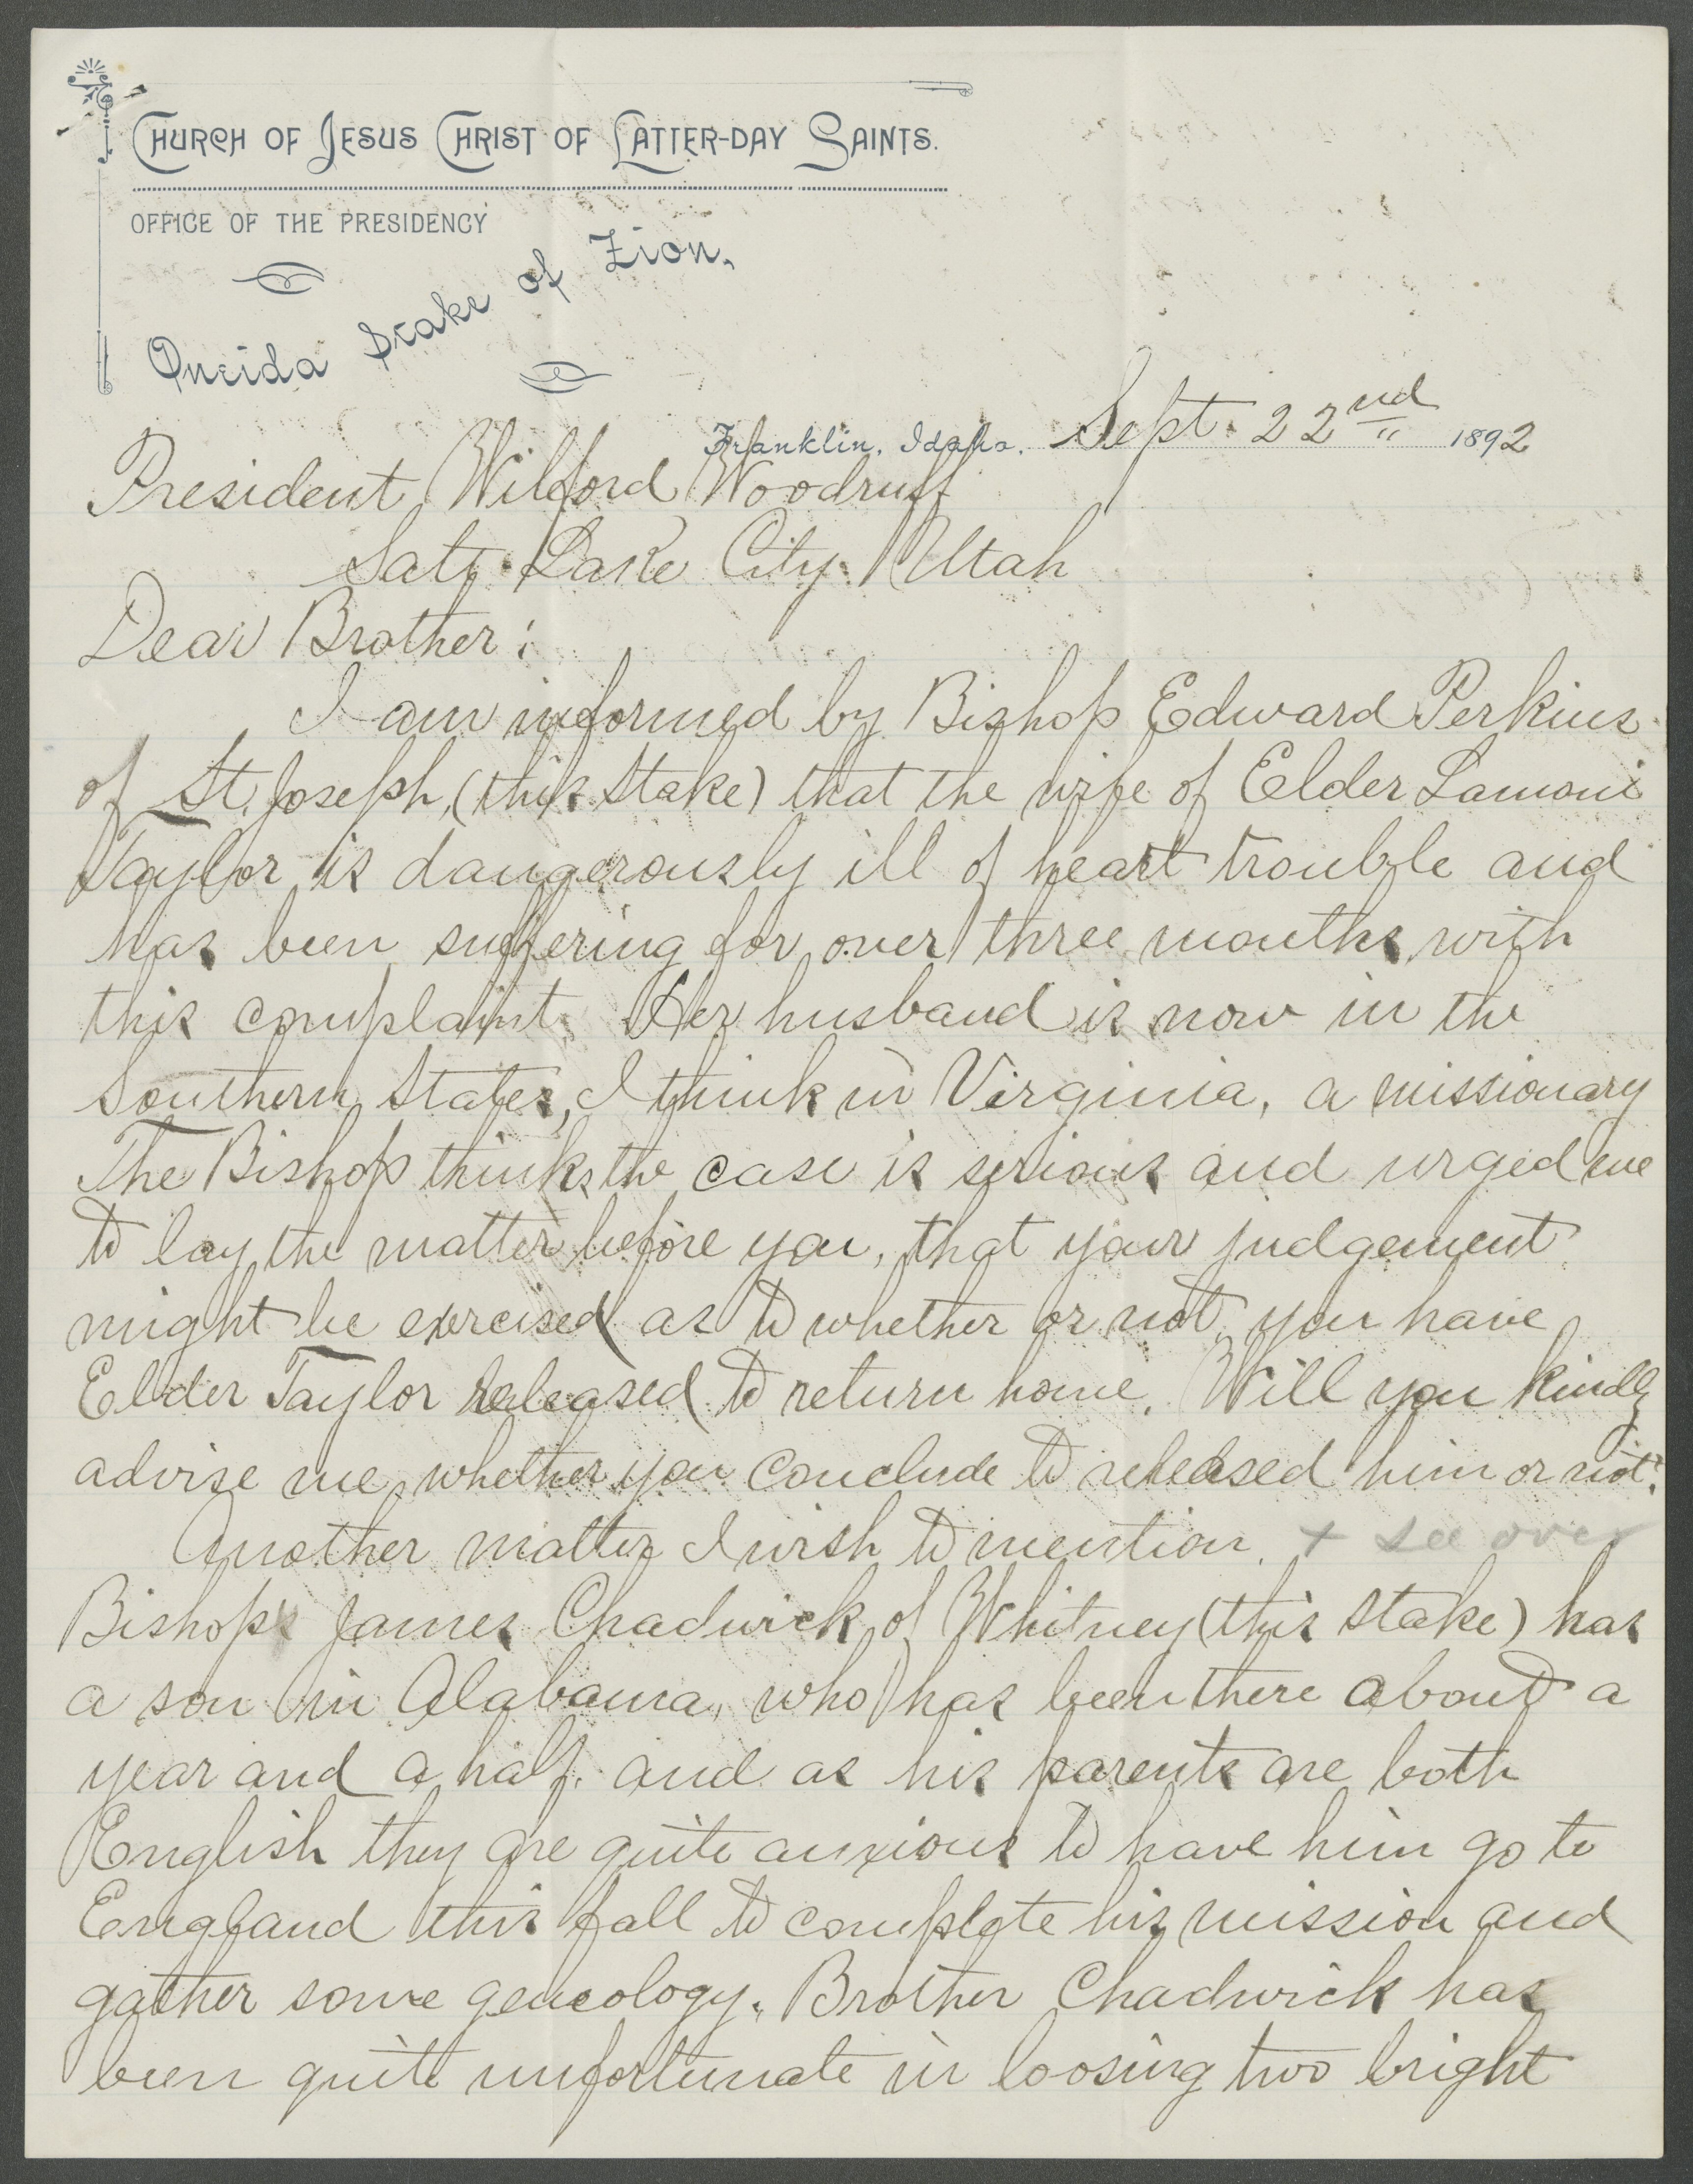 CHURCH OF JESUS CHRIST OF LATTER-DAY SAINTS.
OFFICE OF THE PRESIDENCY
Oneida Stake of Zion.
Franklin, Idaho. Sept. 22nd 1892
President Wilford Woodruff
Salt Lake City Utah
Dear Brother:
I am informed by Bishop Edward Perkins
of St. Joseph, (this Stake) that the wife of Elder Lamoni
Taylor is dangerously ill of heart trouble and
has been suffering for over three months with
this complaint. Her husband is now in the
Southern States, I think in Virginia, a missionary
The Bishop thinks the case is serious and urged me
to lay the matter before you, that your judgement
might be exercised as to whether or not you have
Elder Taylor released to return home. Will you kindly
advise me whether you conclude to released him or not?
Another matter I wish to mention. + see over
Bishop James Chadwick of Whitney (this Stake) has
a son in Alabama, who has been there about a
year and a half. and as his parents are both
English they are quite anxious to have him go to
England this fall to complete his mission and
gather some geneology. Brother Chadwick has
been quite unfortunate in loosing two bright